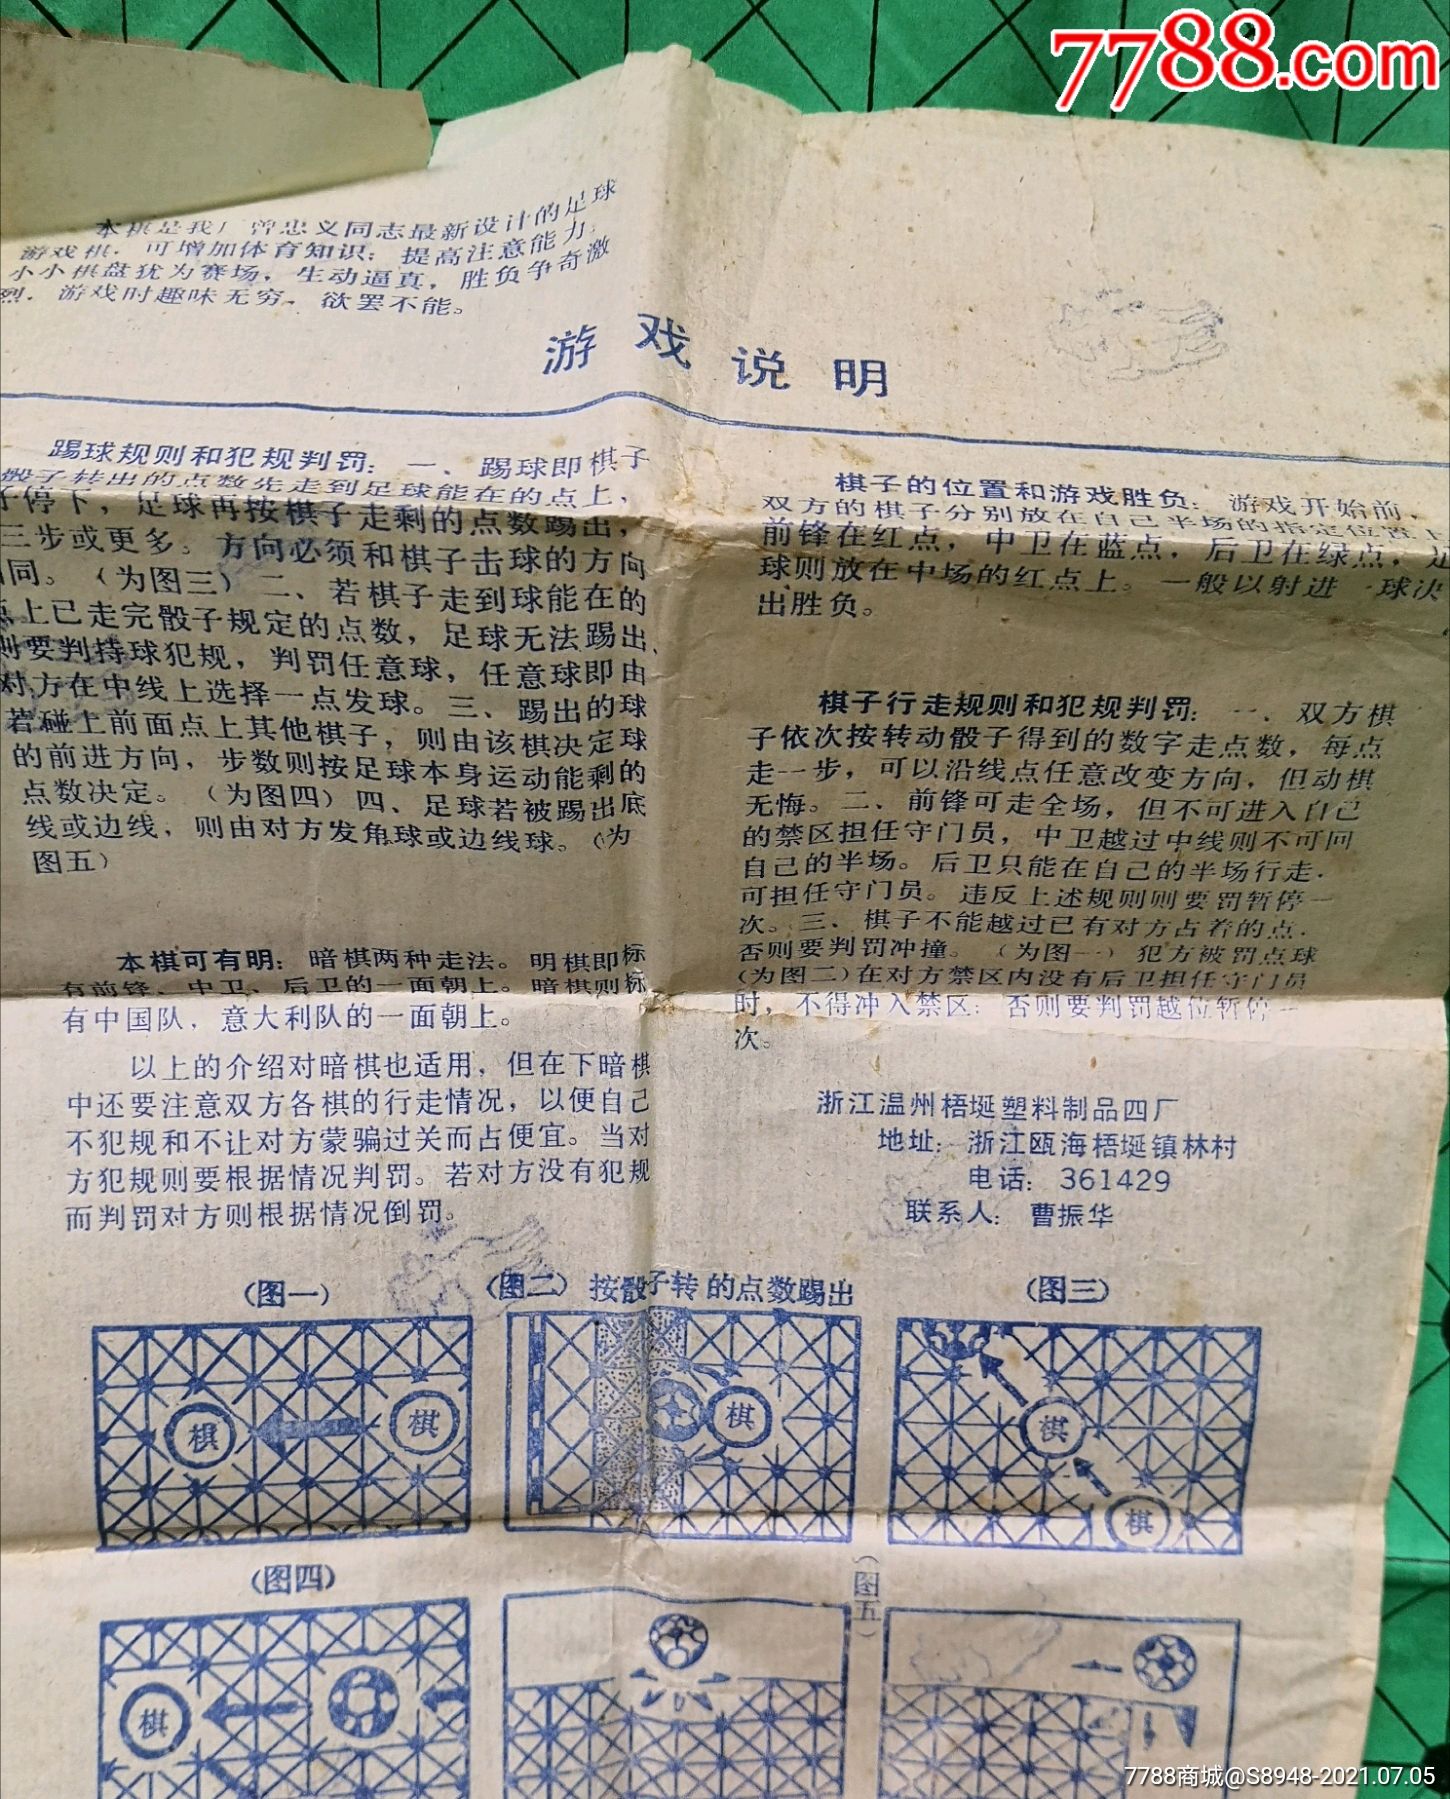 7788.com
本棋是我厂曾忠义同志最新设计的足球
游戏棋，可增加体育知识；提高注意能力；
小小棋盘犹为赛场，生动逼真，胜负争奇激
烈，游戏时趣味无穷，欲罢不能。
游戏说明
踢球规则和犯规判罚：一、踢球即棋子
骰子转出的点数先走到足球能在的点上，
子停下，足球再按棋子走剩的点数踢出，
三步或更多。方向必须和棋子击球的方向
同。（为图三）二、若棋子走到球能在的
点上已走完骰子规定的点数，足球无法踢出，
则要判持球犯规，判罚任意球，任意球即由
对方在中线上选择一点发球。三、踢出的球
若碰上前面点上其他棋子，则由该棋决定球
的前进方向，步数则按足球本身运动能剩的
点数决定。（为图四）四、足球若被踢出底
线或边线，则由对方发角球或边线球。（为
图五）
本棋可有明：暗棋两种走法。明棋即标
有前锋、中卫、后卫的一面朝上。暗棋则标
有中国队，意大利队的一面朝上。
以上的介绍对暗棋也适用，但在下暗棋
中还要注意双方各棋的行走情况，以便自己
不犯规和不让对方蒙骗过关而占便宜。当对
方犯规则要根据情况判罚。若对方没有犯规
而判罚对方则根据情况倒罚。
棋子的位置和游戏胜负：游戏开始前，
双方的棋子分别放在自己半场的指定位置上
前锋在红点，中卫在蓝点，后卫在绿点，足
球则放在中场的红点上。一般以射进一球决
出胜负。
棋子行走规则和犯规判罚：一、双方棋
子依次按转动骰子得到的数字走点数，每点
走一步，可以沿线点任意改变方向，但动棋
无悔。二、前锋可走全场，但不可进入自己
的禁区担任守门员，中卫越过中线则不可回
自己的半场。后卫只能在自己的半场行走，
可担任守门员。违反上述规则则要罚暂停一
次。三、棋子不能越过已有对方占着的点，
否则要判罚冲撞。（为图一）犯方被罚点球
（为图二）在对方禁区内没有后卫担任守门员
时，不得冲入禁区；否则要判罚越位暂停一
次。
浙江温州梧埏塑料制品四厂
地址：浙江瓯海梧埏镇林村
电话：361429
联系人：曹振华
（图一）
棋 棋
（图二）按骰子转的点数踢出
棋
（图三）
棋
棋
（图四）
棋
（图五）
7788商城@S8948-2021.07.05